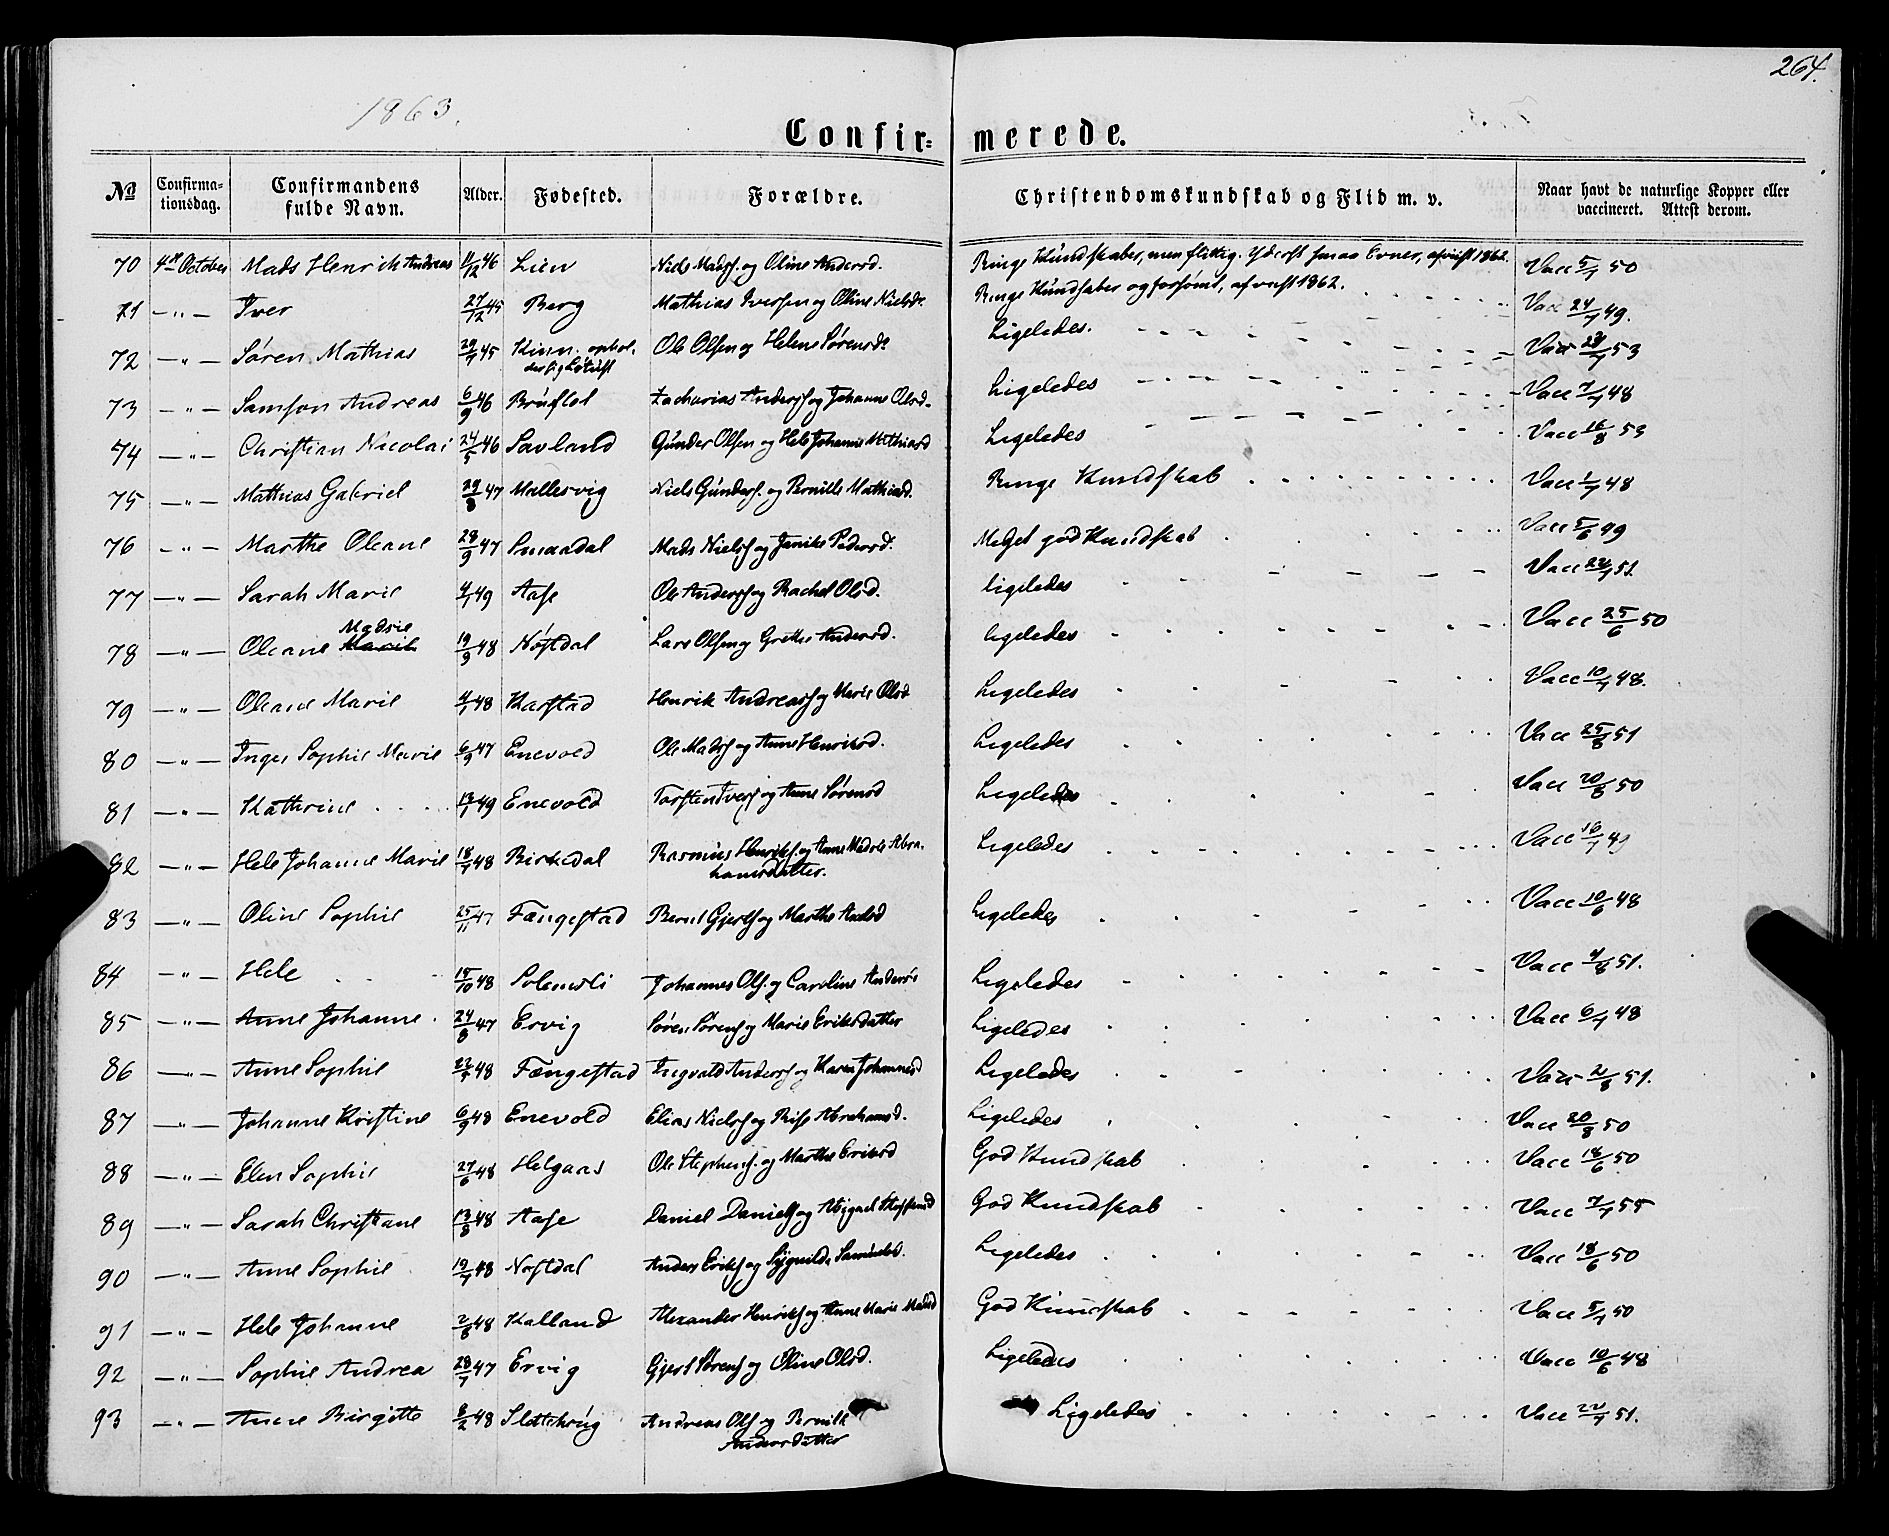 264.
1863.
Confir= merede.
No Confirma-tionsdag. Confirmandens fulde Navn. Alder. Fødested. Forældre. Christendomskundskab og Flid m. v. Naar havt de naturlige Kopper eller vaccineret. Attest derom.
70 4de October Mads Henrik Andreas 11/12 46 Lien Niels Madss. og Oline Andersd. Ringe Kundskaber, men flittig. Yderst smaa Evner, afviist 1862. Vacc 5/7 50
71 —"— Iver 27/12 45 Berg Mathias Iversen og Oline Nielsdr Ringe Kundskaber og forsømt, afviist 1862. Vacc 24/7 49.
72 —"— Søren Mathias 29/7 45 Kinn. ophol. Ole Olsen og Helene Sørensdr Ligeledes. Vacc 29/7 53
73 —"— Samson Andreas 6/9 46 Bruflot Zacharias Anderss og Johanne Olsd. Ligeledes Vacc 7/7 48
74 —"— Christian Nicolai 24/5 46 Savland Gunder Olsen og Hele Johanne Mathiasd Ligeledes Vacc 16/8 53
75 —"— Mathias Gabriel 29/8 47 Mallesvig Niels Gunders. og Pernille Mathiasd. Ringe Kundskab Vacc 1/7 48
76 —"— Marthe Oleane 28/9 47 Smaadal Mads Nielss og Janike Pedersd. Meget god Kundskab Vacc 5/6 49
77 —"— Sarah Marie 4/1 49 Aase Ole Anderss og Rachel Olsd. ligeledes Vacc 22/7 51.
Madsie
78 —"— Oleane Marie 19/9 48 Nøstdal Lars Olsen og Grethe Andersd. ligeledes Vacc 25/6 50
79 —"— Oleane Marie 4/1 48 Karstad Henrik Andreass og Marie Olsd Ligeledes Vacc 10/7 48.
80 —"— Inger Sophie Marie 6/9 47 Enevold Ole Madss og Anne Henriksd. Ligeledes Vacc 25/8 51
81 —"— Kathrine 17/1 49 Enevold Torsten Iverss og Anne Sørensd Ligeledes Vacc 20/8 50
82 —"— Hele Johanne Marie 18/7 48 Birkedal Rasmus Henriks. og Anne Madsie Abra- Ligeledes Vacc 16/7 49
hamsdatter.
83 —"— Oline Sophie 25/11 47 Fængestad Bernt Gjerts og Marthe Andsd Ligeledes Vacc 10/6 48
84 —"— Hele 15/10 48 Solemsli Johannes Ols. og Caroline Andersdr Ligeledes Vacc 4/8 51.
85 —"— Anne Johanne 24/8 47 Ervig Søren Sørens og Marie Eriksdatter Ligeledes Vacc 6/7 48
86 —"— Anne Sophie 48 Fængestad Ingvald Anderss og Karen Johannesd Ligeledes Vacc 2/8 51.
87 —"— Johanne Kristine 6/9 48 Enevold Elias Nielss og Rise Abrahamsd. Ligeledes Vacc 20/8 50
88 —"— Elen Sophie 27/6 48 Helgaas Ole Stephens. og Marthe Eriksd God Kundskab Vacc 18/6 50
89 —"— Sarah Christiane 13/8 48 Aase Daniel Daniels og Abigael God Kundskab Vacc 7/7 55
90 —"— Anne Sophie 19/7 48 Nøstdal Anders Eriks og Sygnilde Samuelsd. Ligeledes Vacc 18/6 50
91 —"— Hele Johanne 2/8 48 Kalland Alexander Henriks og Anne Marie Madsd God Kundskab Vacc 5/7 50
92 —"— Sophie Andrea 28/7 47 Ervig Gjert Sørens og Oline Olsd. Ligeledes Vacc 10/6 48
93 —"— Anne Birgitte 8/2 48 Slettekrug Andreas Ols og Pernille Ligeledes Vacc 22/7 51.
Andersdatter